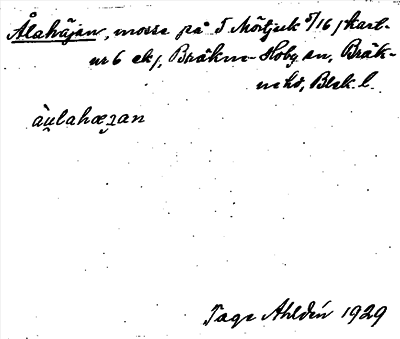 Ålahäjan, mosse på T Mörtjuk 5/16 (kart-
nr 6 ek), Bräkne-Hoby sn, Bräk-
ne hd, Blek. l.
àu̯lahæʒan
Tage Ahldén 1929